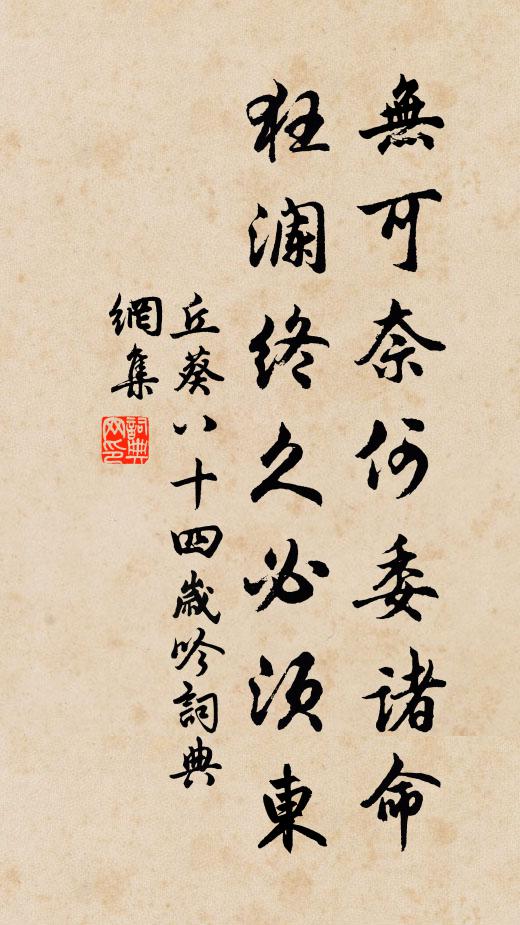 無可奈何委諸命
狂瀾終久必須東
丘葵八十四歲吟詞典
網集
詞典網印